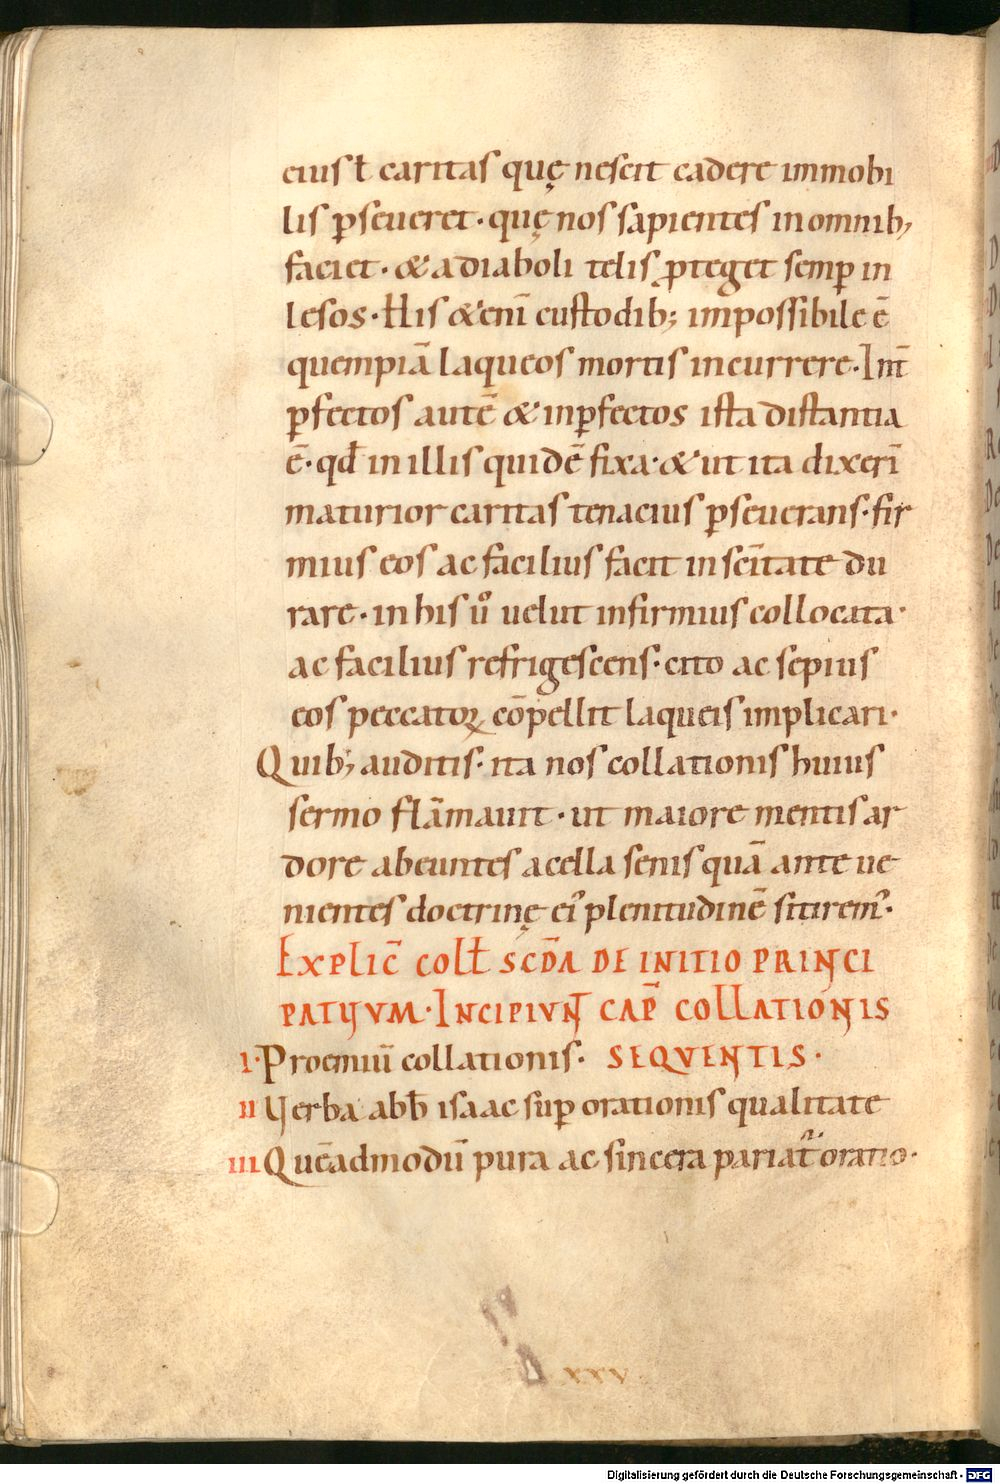 eius ł caritas quę nescit cadere immobi
lis ꝑseueret · quę nos sapientes in omnib;
faciet · & a diaboli telis ꝓteget semꝑ in
lesos · His &enī custodib; impossibile ē
quempiā laqueos mortis incurrere · Int̄
ꝑfectos autē & inꝑfectos ista distantia
ē · qđ in illis quidē fixa · & ut ita dixerī
maturior caritas tenacius ꝑseuerans · fir
mius eos ac facilius facit in scītate du
rare · in his ůo uelut infirmius collocata ·
ac facilius refrigescens · cito ac sepius
eos peccatoꝝ cōpellit laqueis implicari ·
Quib; auditis · ita nos collationis huius
sermo flāmauit · ut maiore mentis ar
dore abeuntes a cella senis quā ante ue
nientes doctrinę ei᾽ plenitudinē sitirem᾽ ·
EXPLIC̄ COLL̄ SCDA DE INITIO PRINCI
PATIIVM · INCIPIVNT CAP̄ COLLATIONIS
I · Proemiū collationis · SEQVENTIS ·
II Verba abb̄ isaac suꝑ orationis qualitate
III Quēadmodū pura ac sincera pariat᾽ oratio ·
XXV
Digitalisierung gefördert durch die Deutsche Forschungsgemeinschaft - DFG